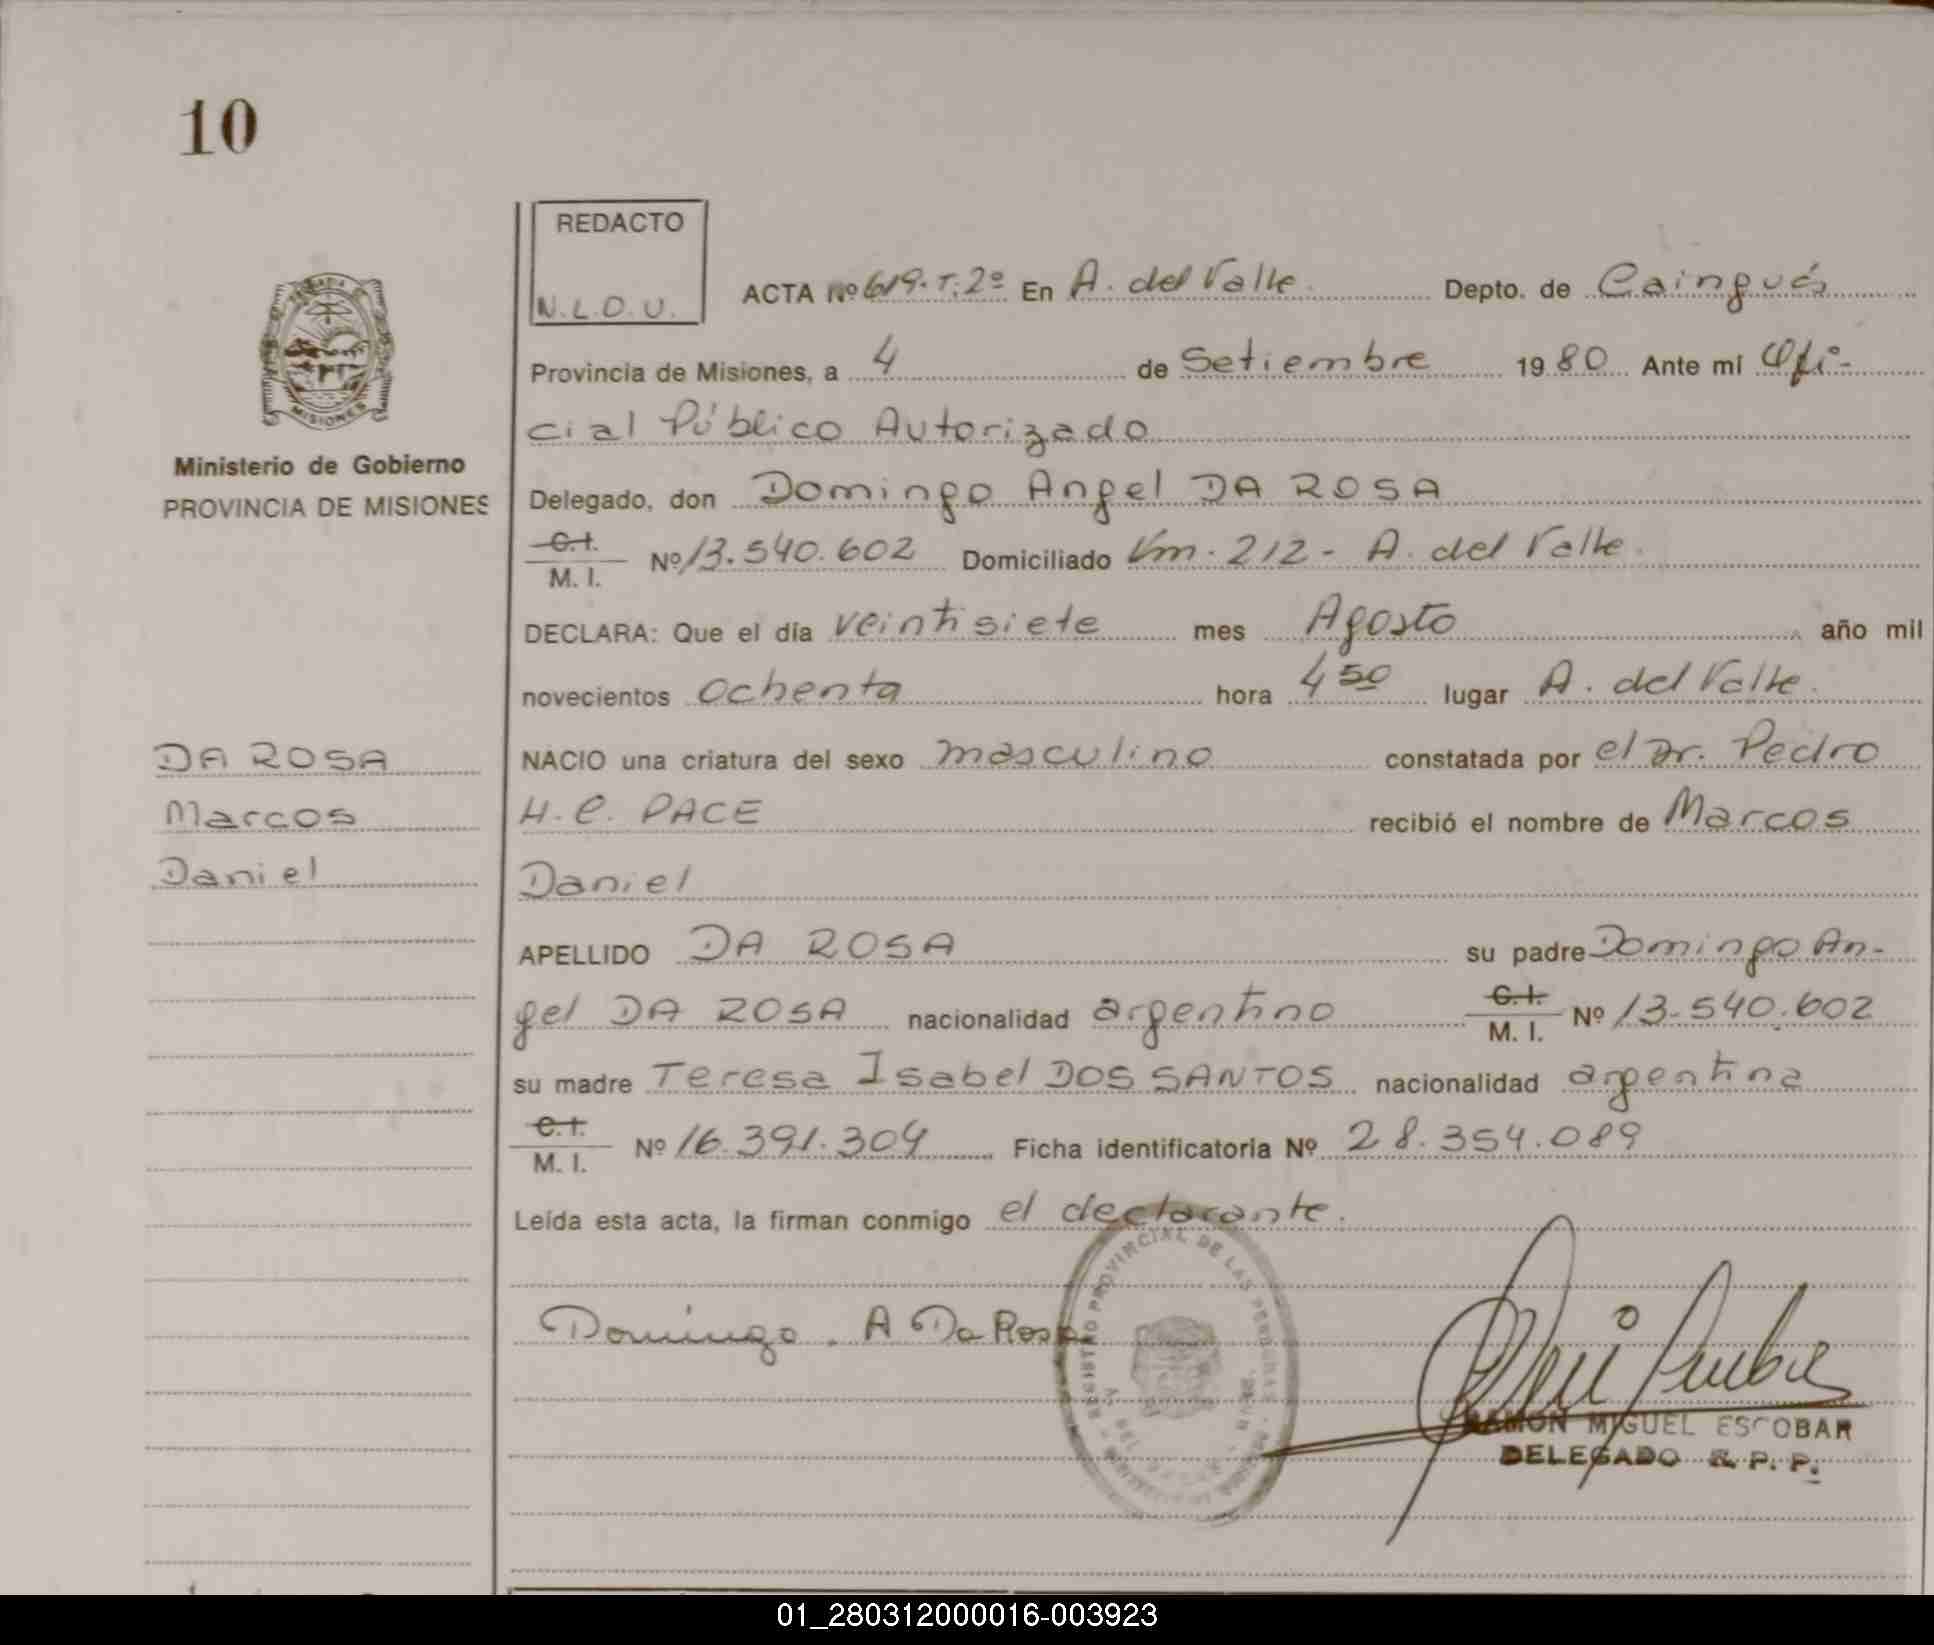 10
REDACTO
N.L.O.U.
ACTA Nº 619. T. 2º En A. del Valle. Depto. de Cainguás
Provincia de Misiones, a 4 de Setiembre 1980 Ante mi Ofi-
cial Público Autorizado
Ministerio de Gobierno
PROVINCIA DE MISIONES
Delegado, don Domingo Angel DA ROSA
C.I. M. I. Nº 13.540.602 Domiciliado Km. 212 - A. del Valle.
DECLARA: Que el día veintisiete mes Agosto año mil
novecientos ochenta hora 4 50 lugar A. del Valle.
DA ROSA
Marcos
Daniel
NACIO una criatura del sexo masculino constatada por el Dr. Pedro
H. C. PACE recibió el nombre de Marcos
Daniel
APELLIDO DA ROSA su padre Domingo An-
gel DA ROSA nacionalidad argentino C.I. M. I. Nº 13.540.602
su madre Teresa Isabel DOS SANTOS nacionalidad argentina
C.I. M. I. Nº 16.391.304 Ficha identificatoria Nº 28.354.089
Leída esta acta, la firman conmigo el declarante.
Domingo. A Da Rosa
REGISTRO PROVINCIAL DE LAS PERSONAS
RAMON MIGUEL ESCOBAR
DELEGADO R. P. P.
MISIONES
01_280312000016-003923